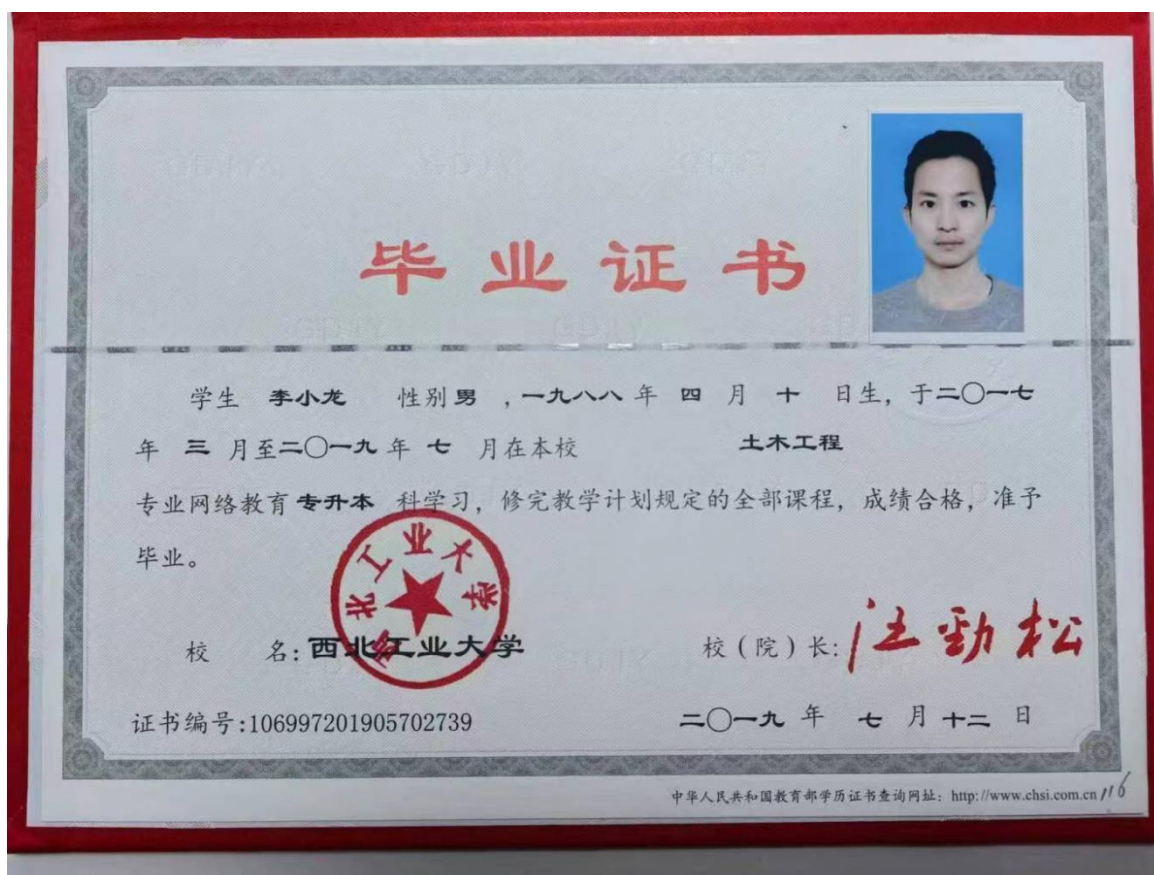 毕业证书
学生 李小龙 性别 男 ,一九八八 年 四 月 十 日生, 于二〇一七
年 三 月至二〇一九 年 七 月在本校 土木工程
专业网络教育 专升本 科学习, 修完教学计划规定的全部课程, 成绩合格, 准予
毕业。
西北工业大学
校 名: 西北工业大学 校(院)长: 汪劲松
证书编号:106997201905702739 二〇一九 年 七 月 十二 日
中华人民共和国教育部学历证书查询网址: http://www.chsi.com.cn 116